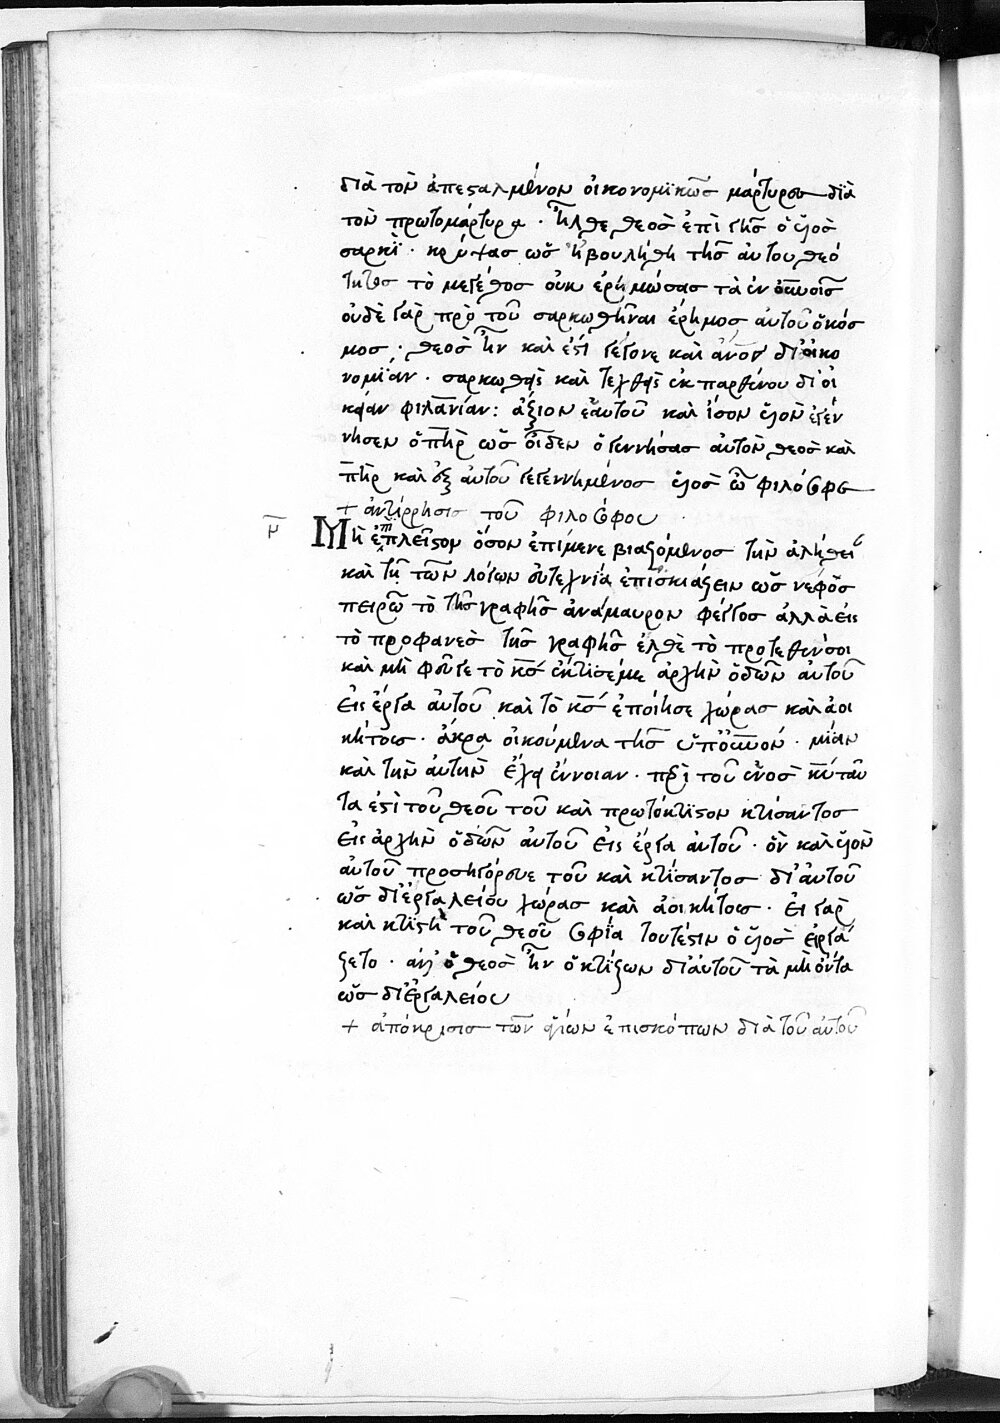 διὰ τὸν ἀπεσταλμένον οἰκονομϊκῶς μάρτυρου διὰ
τὸν πρωτομάρτυρα · ἦλθε θεὸς ἐπὶ γῆς ὁ ϋἱὸς
σαρκῒ · κρύψας ὡς ἠβουλήθη τῆς αὐτου θεό
τητος τὸ μεγέθος οὐκ ἐρημώσας τὰ ἐν οὐνοις
οὐδὲ γὰρ πρὸ τοῦ σαρκωθῆναι ἐρημος αὐτοῦ ὁ κόσ
μος · θεὸς ἦν καὶ ἐστι γέγονε καὶ ἄνος δι' οἰκο
νομίαν · σαρκωθεὶς καὶ τεχθεὶς ἐκ παρθένου δι' οἰ
κείαν φιλανίαν : ἄξιον ἑαυτοῦ καὶ ἴσον ϋἱὸν ἐγέν
νησεν ὁ πηρ ὡς οἶδεν ὁ γεννήσας αὐτὸν θεὸς καὶ
πηρ καὶ ὁ ἐξ αὐτοῦ γεγεννημένος ϋἱὸς ὦ φιλόσοφε
+ ἀντίρρησις τοῦ φιλοσόφου
μ Μὴ ἐπιπλεῖστον ὅσον ἐπίμενε βιαζόμενος τὴν ἀλήθει
καὶ τῇ τῶν λόγων εὐτεχνία ἐπισκιάζειν ὡς νεφος
πειρῶ τὸ τῆς γραφῆς ἀνάμαυρον φέγγος ἀλλὰ εἰς
τὸ προφανὲς τῆς γραφῆς ἐλθὲ τὸ προτεθέν σοι
καὶ μὴ φεῦγε τὸ κς ἔκτισέ με ἀρχὴν ὁδῶν αὐτοῦ
εἰς ἔργα αὐτοῦ καὶ τὸ κς ἐποίησε χώρας καὶ ἀοι
κήτους · ἄκρα οἰκούμενα τῆς ὑπ' οὐνόν · μίαν
καὶ τὴν αὐτὴν ἔχει ἔννοιαν · περὶ τοῦ ἑνὸς κυ ταῦ
τα ἐστὶ τοῦ θεοῦ τοῦ καὶ πρωτόκτιστον κτίσαντος
εἰς ἀρχὴν ὁδῶν αὐτοῦ εἰς ἔργα αὐτοῦ · ὃν καὶ ϋἱὸν
αὐτοῦ προσηγόρευε τοῦ καὶ κτίσαντος δι' αὐτοῦ
ὡς δι' ἐργαλείου χώρας καὶ ἀοικήτους · εἰ γὰρ
καὶ κτίστη τοῦ θεοῦ σοφία τουτέστιν ὁ ϋἱὸς εἰργά
ζετο · ἀλλ' ὁ θεὸς ἦν ὁ κτίζων δι' αὐτοῦ τὰ μὴ ὄντα
ὡς δι' ἐργαλείου
+ ἀπόκρισις τῶν ἁγίων ἐπισκόπων διὰ τοῦ αὐτοῦ